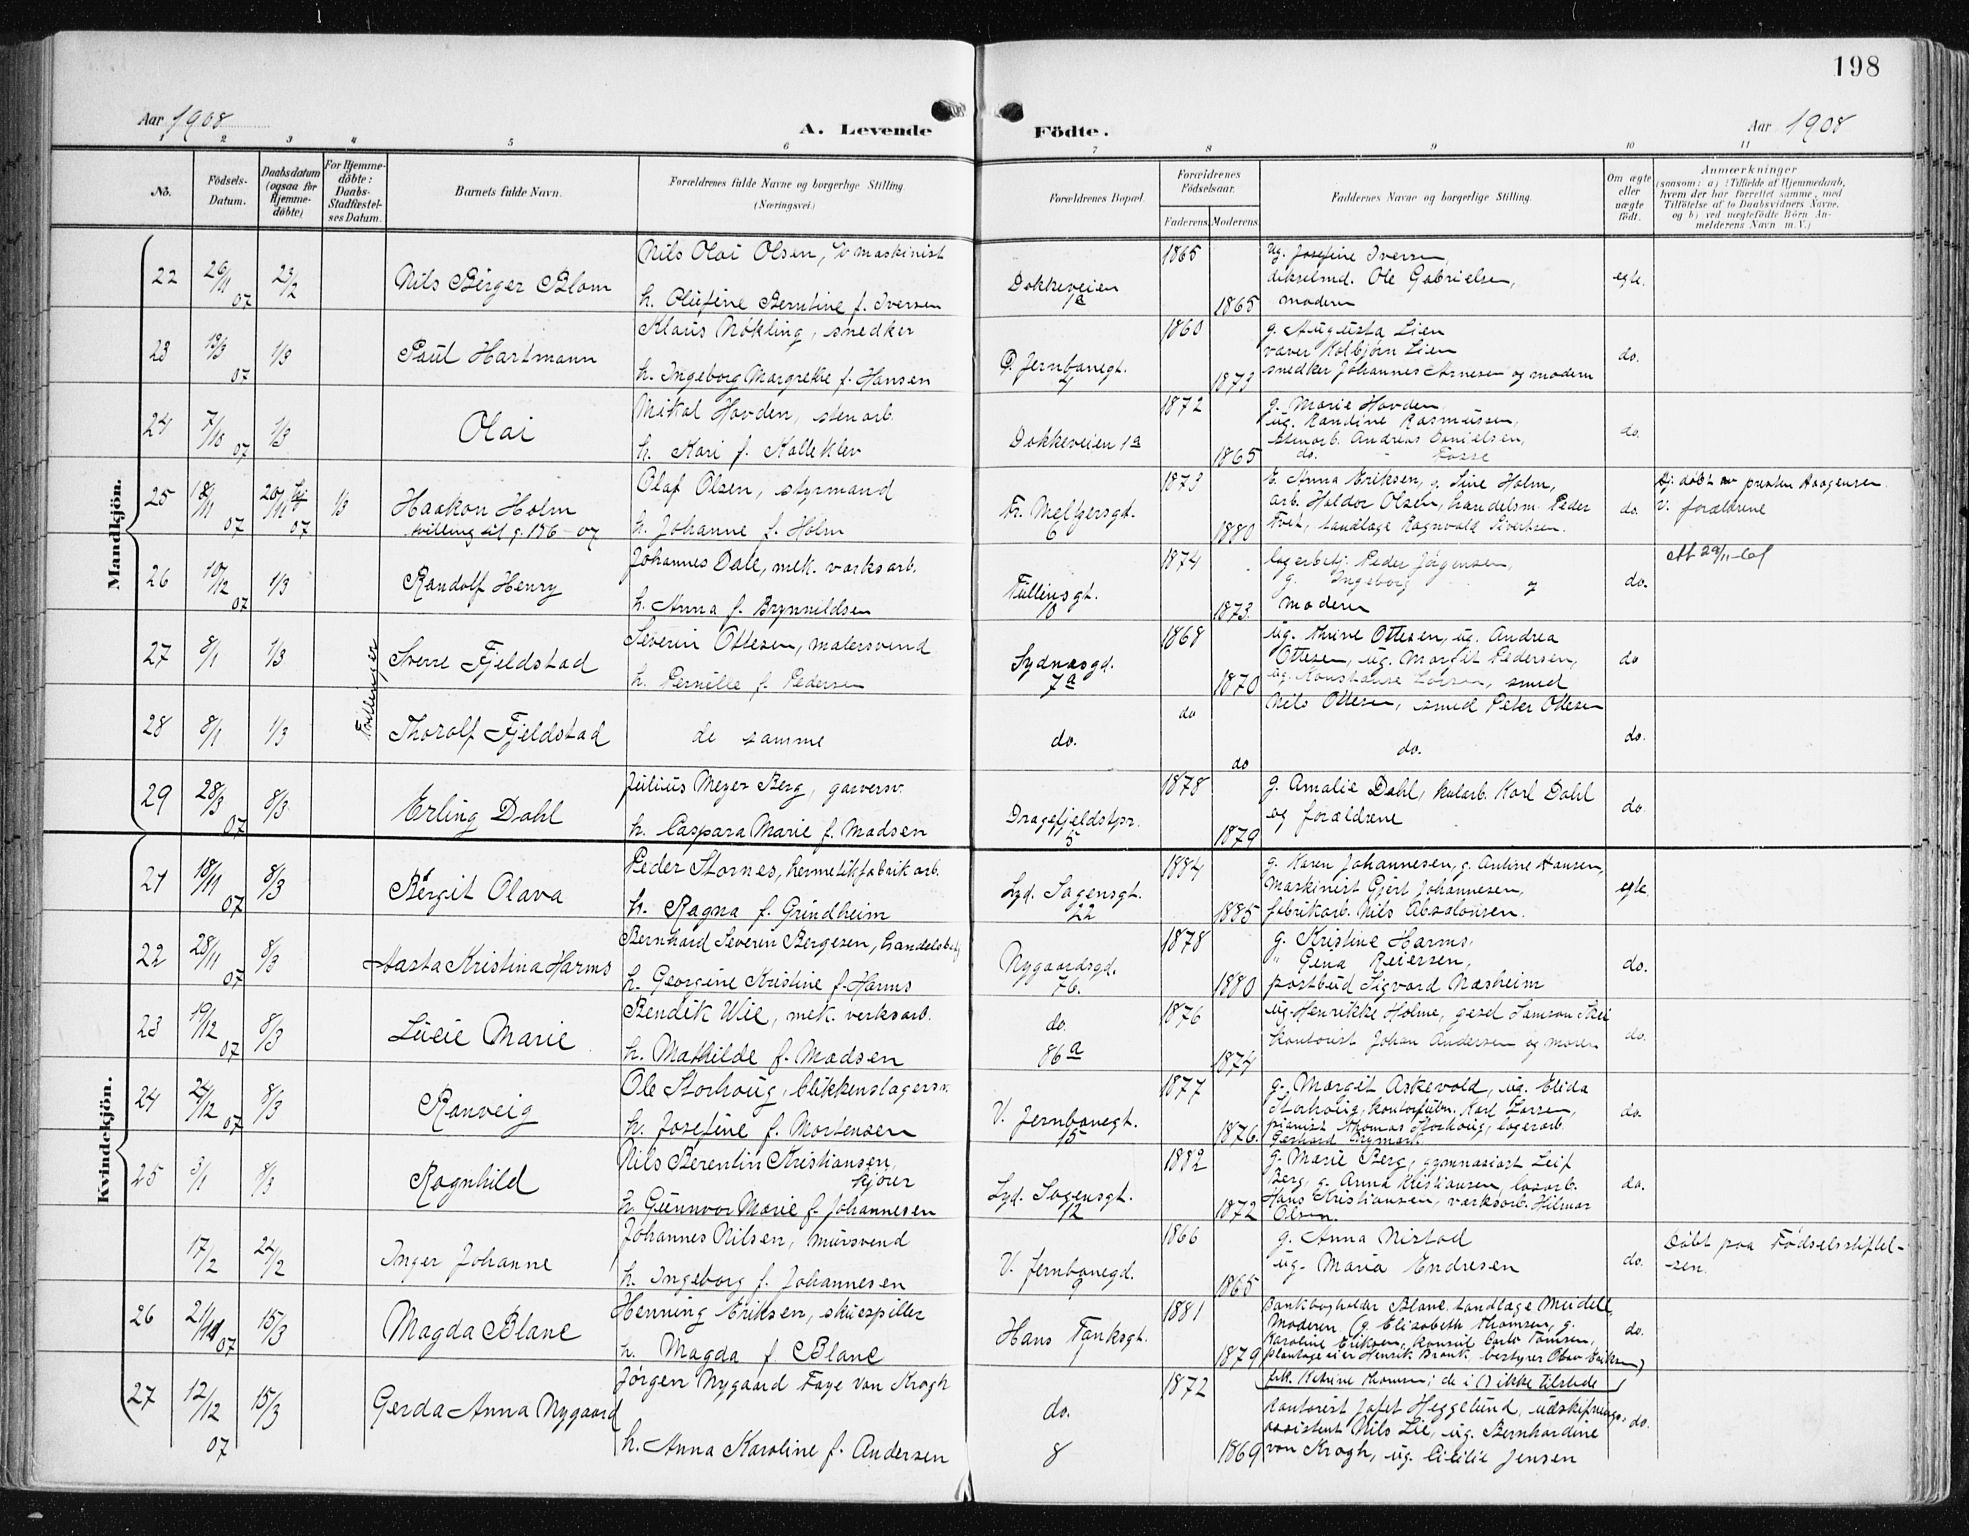 198
Aar 1908
A. Levende
Födte.
Aar 1908
1 2 3 4 5 6 7 8 9 10 11
No.
Födsels-Datum.
Daabsdatum (ogsaa for Hjemme-döbte)
For Hjemme-döbte: Daabs-Stadfæstel-ses Datum.
Barnets fulde Navn.
Forældrenes fulde Navne og borgerlige Stilling. (Næringsvei.)
Forældrenes Bopæl.
Forældrenes Födselsaar.
Faderens Moderens
Faddernes Navne og borgerlige Stilling.
Om ægte eller uægte födt.
Anmærkninger
(saasom: a) i Tilfælde af Hjemmedaab, hvem der har forrettet samme, med Tilföielse af to Daabsvidners Navne, og b) ved uægtefödte Börn An-melderens Navn m. V.)
Mandkjön.
22 26/11 07 23/2 Nils Birger Blom
Nils Olai Olsen, maskinist
h. Olufine Berntine f. Iversen
Dokkeveien 1a 1865 1865
ug. Josefine Iversen,
Ole Gabrielsen,
modern
egte.
23 13/3 07 1/3 Paul Hartmann
Klaus Nökling, snedker
h. Ingeborg Margrethe f. Hansen
Ø. Jernbanegt. 4 1860 1873
g. Augusta Lien
væver Kolbjørn Lien
snedker Johannes Arnesen og modern
do.
24 7/10 07 1/3 Olai
Mikal Hovden, stenarb.
h. Kari f. Kalleklev
Dokkeveien 1a 1872 1865
g. Marie Hovden,
ug. Randine Rasmussen,
stenarb. Andreas Danielsen,
do. Fosse
do.
25 18/11 07 20/11 07 1/3 Haakon Holm
tvilling til g. 176-07
Olaf Olsen, styrmand
h. Johanne f. Holm
Fr. Meltzersgd. 6 1873 1880
E. Anna Eriksen, g. Sine Holm,
arb. Haldor Olsen, handelsm. Peder
Tvet, tandlæge Ragnvald Sivertsen.
do.
Hj. döbt av presten Haagensen
V. forældrene
26 10/12 07 1/3 Randolf Henry
Johannes Dale, mek. værksarb.
h. Anna f. Brynnildsen
Tullinsgt. 10 1874 1873.
lagerbetj. Peder Jörgensen,
g. Ingeborg og
moderen
do.
27 8/1 1/3 Sverre Fjeldstad
Tvillinger
Severin Ottesen, malersvend
h. Pernille f. Pedersen
Sydnæsgd. 7a 1868 1870
ug. Thrine Ottesen, ug. Andrea
Ottesen, ug. Margit Pedersen,
ug. Konstanse Larsen, smed
Nils Ottesen, smed Peter Ottesen
do
28 8/1 1/3 Thorolf Fjeldstad
de samme
do. do do
do.
do.
29 28/3 07 8/3 Erling Dahl
Julius Meyer Berg, garversv.
h. Caspara Marie f. Madsen
Dragefjeldstpr. 5 1878 1879
g. Amalie Dahl, kularb. Karl Dahl
og forældrene
do.
Kvindekjön.
21 18/11 07 8/3 Bergit Olava
Peder Stornes, hermetikfabrikarb.
h. Ragna f. Grindheim
Lyd. Sagensgt. 22 1884 1885
g. Karen Johannesen, g. Antine Hansen,
Maskinist Gjert Johannesen,
fabrikarb. Nils Absalonsen.
egte.
22 28/11 07 8/3 Aasta Kristina Harms
Bernhard Severin Bergesen, handelsbetj
h. Georgine Kristine f. Harms
Nygaardsgd. 76. 1878 1880
g. Kristine Harms,
" Gena Reiersen,
postbud Sigvard Næsheim
do.
23 19/12 07 8/3 Lucie Marie
Bendik Wie, mek. verksarb.
h. Mathilde f. Madsen
do. 86a 1876 1874
ug. Henrikke Holme, gesel Samson Skei
kontorist Johan Andersen og moren
do.
24 24/12 07 8/3 Ranveig
Ole Storhoug, blikkenslagersv.
h. Josefine f. Mortensen
V. Jernbanegt. 15 1877 1876.
g. Margit Askevold, ug. Elida
Storhoug, kontorfuldm. Karl Larsen,
pianist Thomas Storhoug, lagerarb.
Gerhard Grymark
do.
25 3/1 8/3 Ragnhild
Nils Berentin Kristiansen,
kjører
h. Gunnvor Marie f. Johannesen
Lyd. Sagensgt. 12 1882 1872
g. Marie Berg, gymnasiast Leif
Berg, g. Anna Kristiansen, losarb.
Hans Kristiansen, værksarb. Hilmar
Olsen.
do.
17/2 24/2 Inger Johanne
Johannes Nilsen, mursvend
h. Ingeborg f. Johannesen
V. Jernbanegd. 9 1866 1865
g. Anna Nistad
ug. Maria Endresen
do.
Döbt paa Födselsstiftel-
sen.
26 21/11 07 15/3 Magda Blanc
Henning Eriksen, skuespiller
h. Magda f. Blanc
Hans Tanksgt. 1 1881 1879
Bankbogholder Blanc, tandlæge Meidell,
Moderen (g. Elisabeth Thomsen, g.
Karoline Eriksen, konsul Carlo Tomsen,
plantageeier Henrik Blank, bestyrer Olav Eriksen,
frk. Katrine Thomsen; de i () ikke tilstede
do.
27 12/12 07 15/3 Gerda Anna Nygaard
Jörgen Nygaard Faye von Krogh
h. Anna Karoline f. Andersen
do. 8 1872 1869
kontorist Jofet Heggelund, udskiftnings-
assistent Nils Lie, ug. Bernhardine
von Krogh, ug. Cicilie Jensen
do.